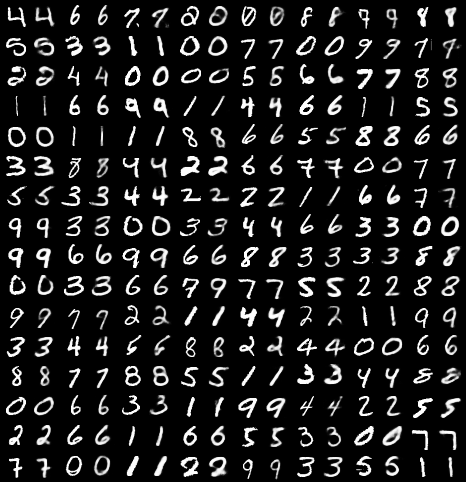 4 4 6 6 7. 7. 2 2 0 0 8 8 9 9 8 8
5 5 3 3 1 1 0 0 7 7 0 0 9 9 7 7
2 2 4 4 0 0 0 0 5 5 6 6 7 7 8 8
1 1 6 6 9 9 1 1 4 4 6 6 1 1 5 5
0 0 1 1 1 1 8 8 6 6 5 5 8 8 6 6
3 3 8 8 4 4 2 2 6 6 7 7 0 0 7 7
5 5 3 3 4 4 2 2 2 2 1 1 6 6 7 7
9 9 3 3 0 0 3 3 4 4 6 6 3 3 0 0
9 9 6 6 9 9 6 6 8 8 3 3 3 3 8 8
0 0 3 3 6 6 7 9 7 7 5 5 2 2 8 8
9 9 7 7 2 2 1 1 4 4 2 2 1 1 9 9
3 3 4 4 5 5 8 8 2 2 4 4 0 0 6 6
8 8 7 7 8 8 5 5 1 1 3 3 4 4 8 8
0 0 6 6 3 3 1 1 9 9 4 4 2 2 5 5
2 2 6 6 1 1 6 6 5 5 3 3 0 0 7 7
7 7 0 0 1 1 2 2 9 9 3 3 5 5 1 1